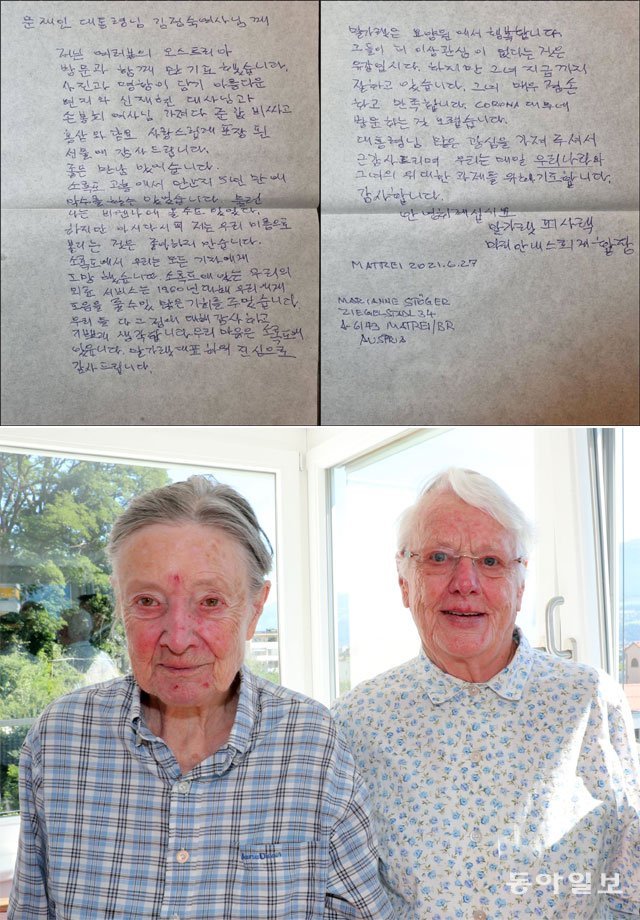 문재인 대통령님 김정숙여사님께
저는 여러분의 오스트리아
방문과 함께 만 기쁘 했습니다.
사진과 명함이 담기 아름다운
편지와 신재현 대사님과
여사님 가져다 준 값 비싸고
홍삼과 사랑스럽게 포장 된
선물에 감사드립니다.
좋은 만남 있었습니다.
소록도 고흥에서 만난지 5년 만에
하지만 아시다시피 저는 우리 이름으로
불리는 것은 좋아하지 않습니다.
소록도에서 우리는 모든 기자에게
도망 했습니다. 소록도에 있는 우리의
의료 서비스는 1960년대에 우리에게
도움을 줄 수 있 많은 기회를 주었습니다.
우리 둘 다 그 점에 대해 감사하고
기쁘게 생각합니다. 우리 마음은 소록도에
있습니다. 말가렛 대표하여 진심으로
감사드립니다.
말가렛은 요양원에서 행복합니다.
그들이 더 이상 관심이 없다는 것은
유감입니다. 하지만 그녀 지금까지
잘하고 있습니다. 그녀 매우 겸손
하고 만족합니다. CORONA 때문에
방문하는 건 어렵습니다.
대통령님 많은 관심을 가져 주셔서
감사드리며 우리는 매일 우리나라와
그녀의 위대한 과제를 위해 기도합니다.
감사합니다.
말가렛 피사렉
마리안내 스퇴거 올림
MATREI 2021.6.27
MARIANNE STÖGER
ZIEGELSTADL 34
A 6143 MATREI/BR
AUSTRIA
동아일보